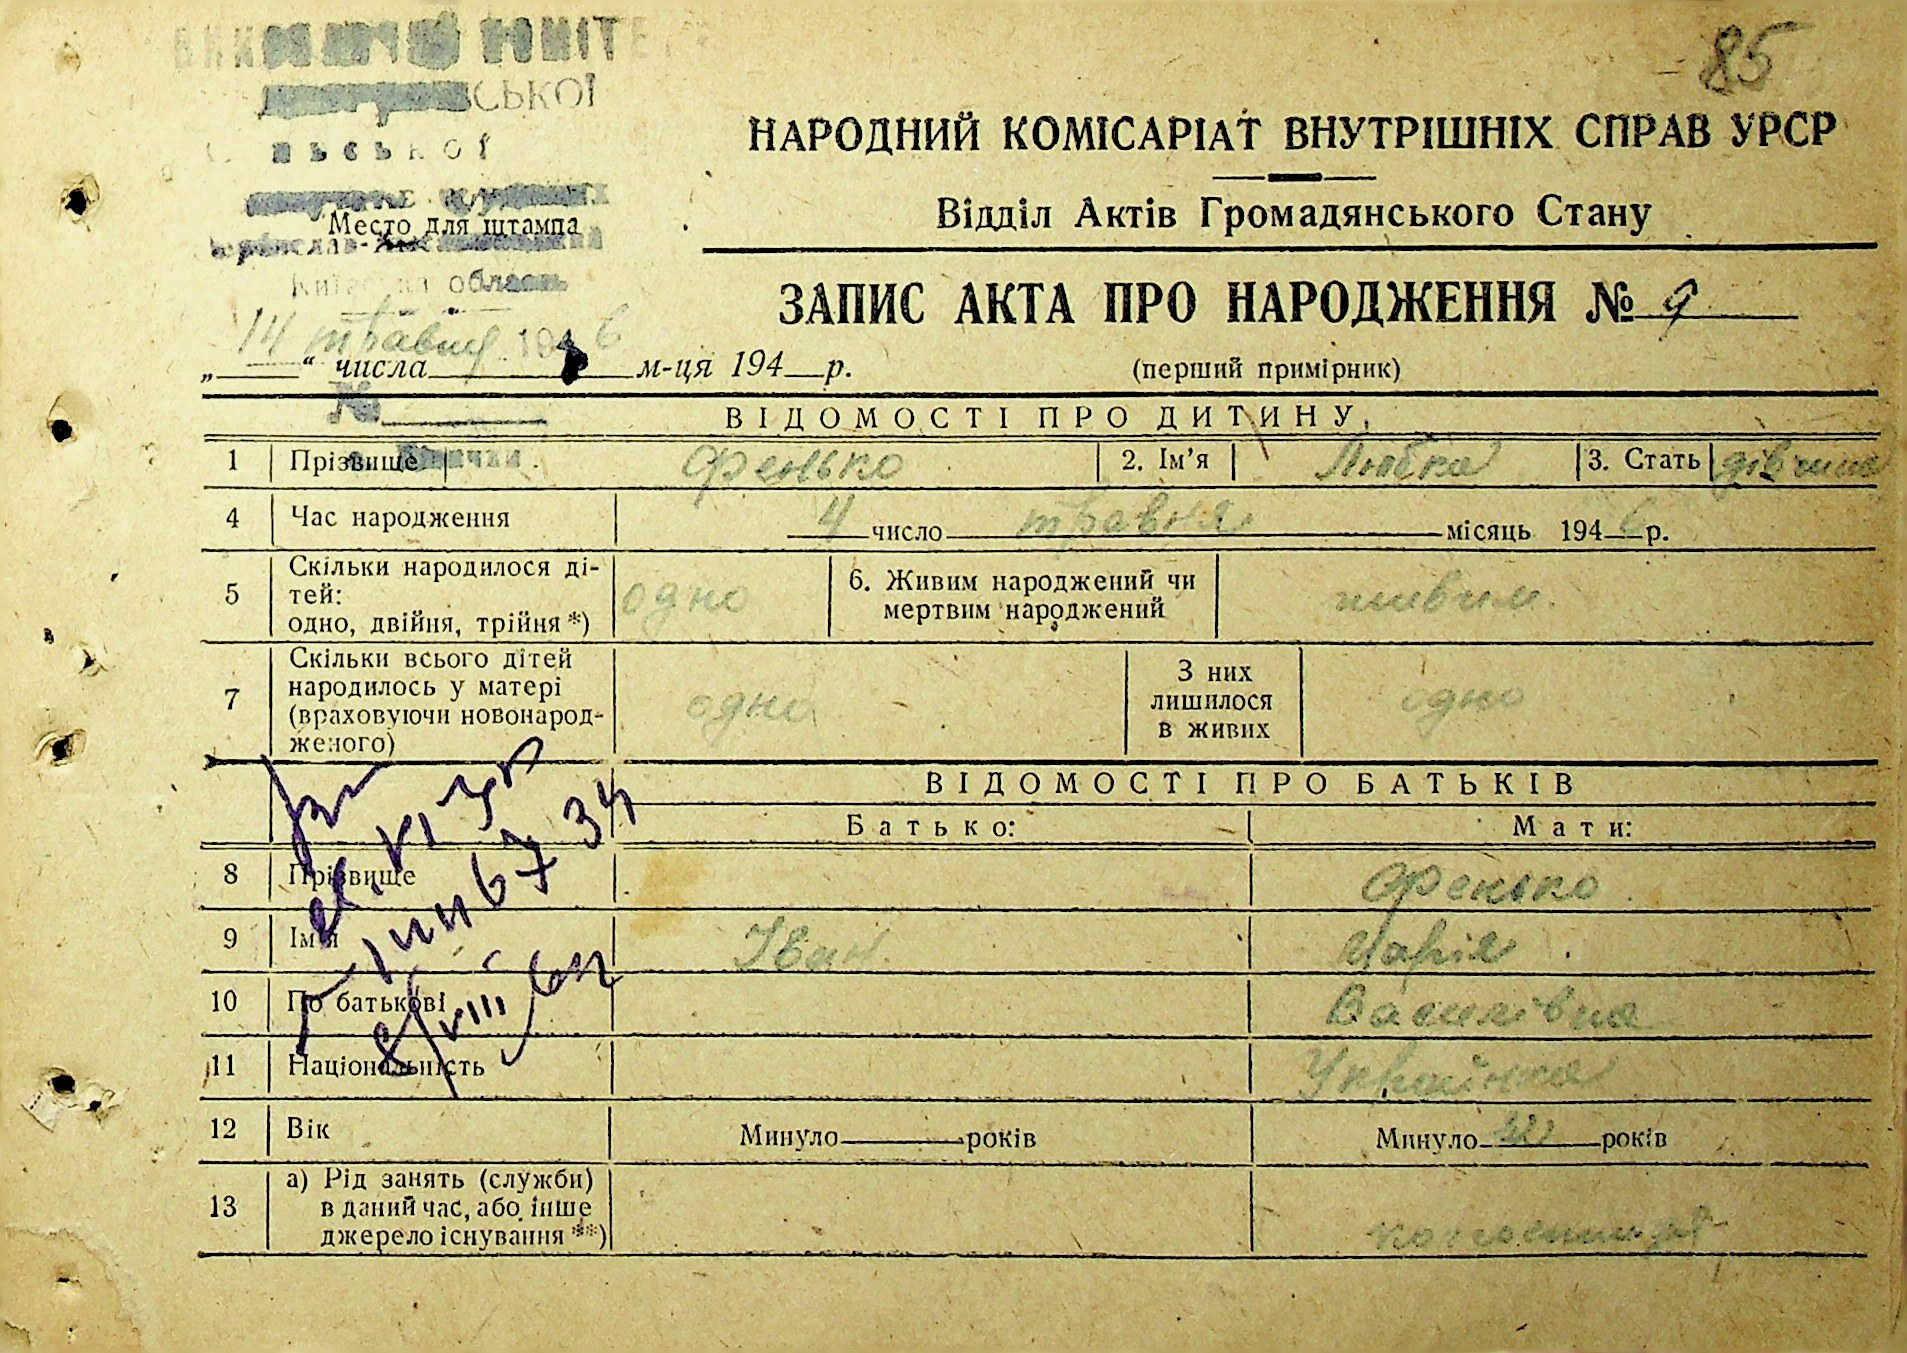 85
ВИКОНАВЧИЙ КОМІТЕТ
СЬКОЇ
Місто для штампа
Київська область
НАРОДНИЙ КОМІСАРІАТ ВНУТРІШНІХ СПРАВ УРСР
Відділ Актів Громадянського Стану
ЗАПИС АКТА ПРО НАРОДЖЕННЯ № 9
14 травня 1946
„ “ числа м-ця 194 р.
(перший примірник)
№
ВІДОМОСТІ ПРО ДИТИНУ
1 Прізвище Френько 2. Ім’я Любка 3. Стать дівчина
4 Час народження 4 число травня місяць 1946 р.
5 Скільки народилося ді-
тей:
одно, двійня, трійня *) одно 6. Живим народжений чи
мертвим народжений живим.
7 Скільки всього дітей
народилось у матері
(враховуючи новонарод-
женого) одно З них
лишилося
в живих одно
ВІДОМОСТІ ПРО БАТЬКІВ
Батько: Мати:
8 Прізвище Френько
9 Ім'я Іван. Марія
10 По батькові Василівна
11 Національність Українка
12 Вік Минуло років Минуло років
13 а) Рід занять (служби)
в даний час, або інше
джерело існування **)